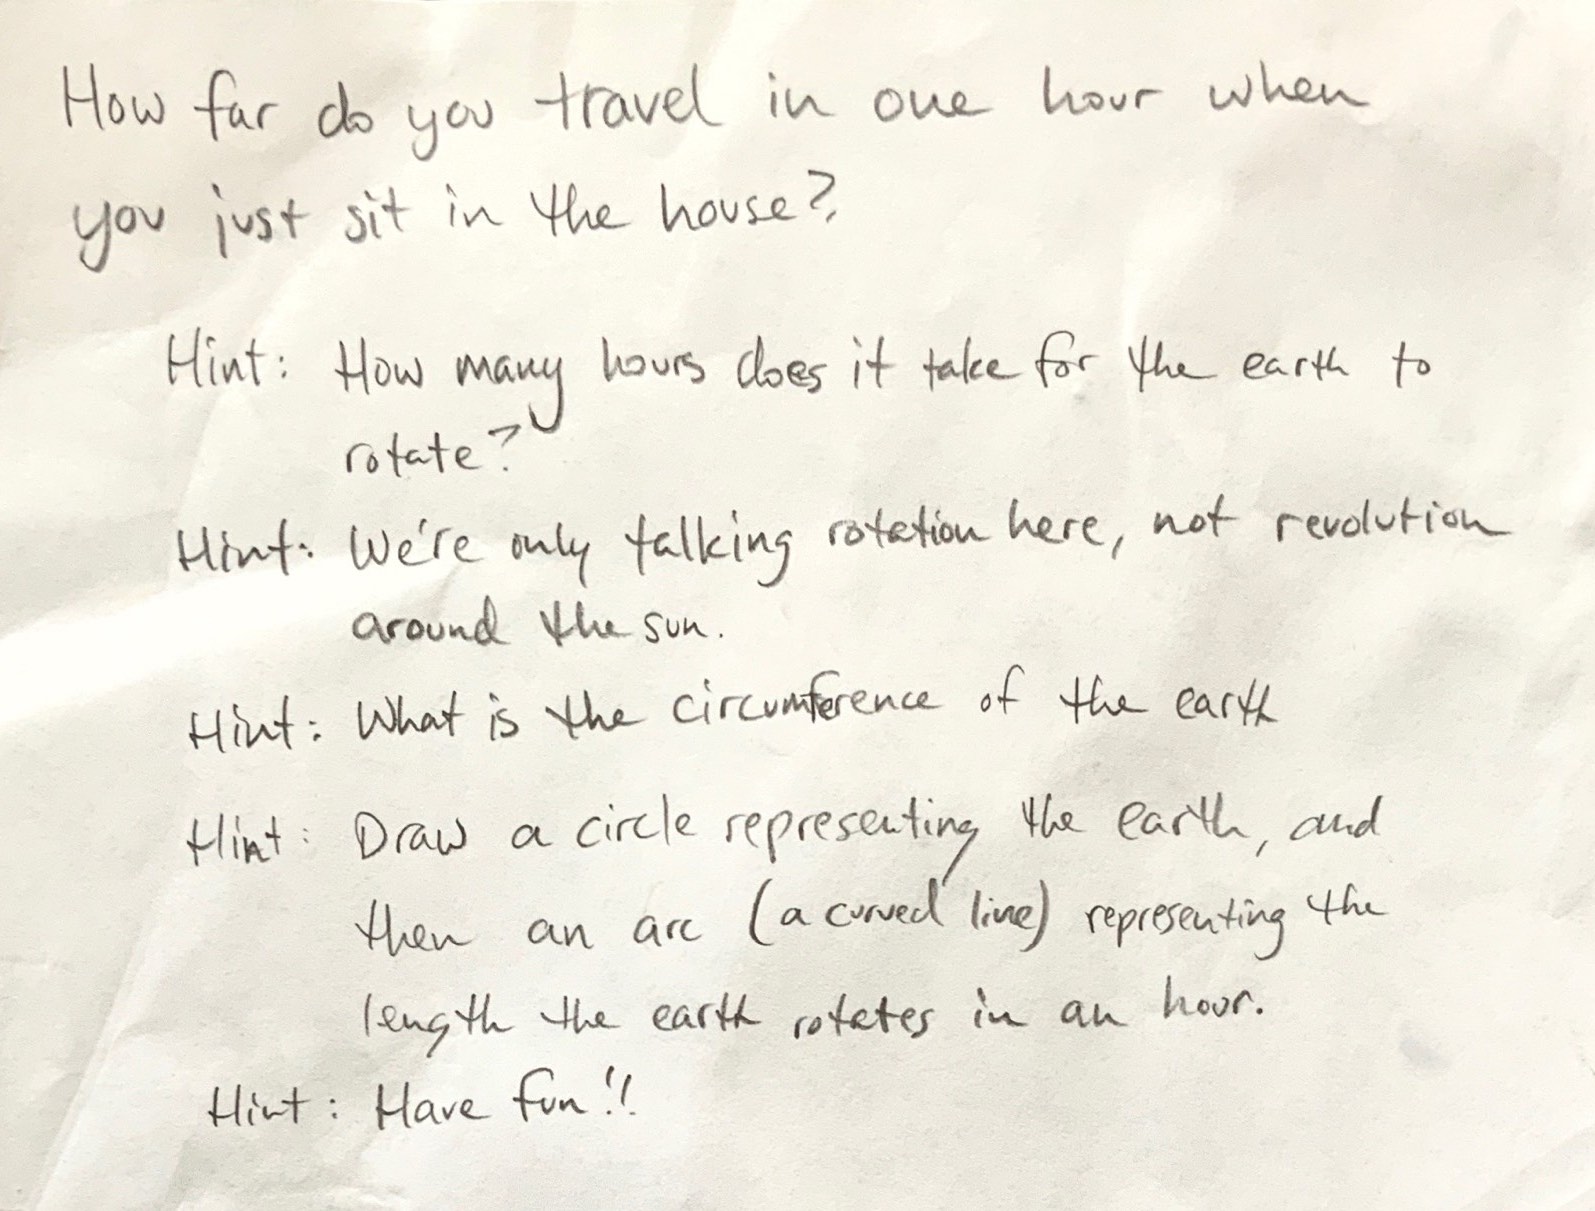 How far do you travel in one hour when
you just sit in the house?
Hint: How many hours does it take for the earth to
rotate?
Hint: We're only talking rotation here, not revolution
around the sun.
Hint: What is the circumference of the earth
Hint: Draw a circle representing the earth, and
then an arc (a curved line) representing the
length the earth rotates in an hour.
Hint: Have fun!!